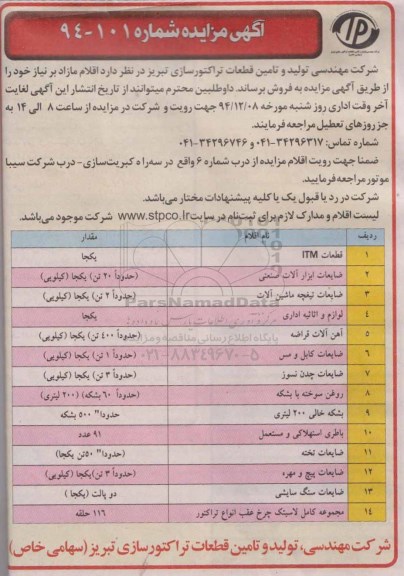 آگهی مزایده شماره ۱۰۱-۹۴
شرکت مهندسی تولید و تامین قطعات تراکتورسازی تبریز در نظر دارد اقلام مازاد بر نیاز خود را
از طریق آگهی مزایده به فروش برساند. داوطلبین محترم میتوانند از تاریخ انتشار این آگهی لغایت
آخر وقت اداری روز شنبه مورخه ۹۴/۱۲/۰۸ جهت رویت و شرکت در مزایده از ساعت ۸ الی ۱۴ به
جز روزهای تعطیل مراجعه فرمایند.
شماره تماس: ۳۴۲۹۶۳۱۷-۰۴۱ و ۳۴۲۹۶۷۴۶-۰۴۱
ضمنا جهت رویت اقلام مزایده از درب شماره ۶ واقع در سه‌راه کبریت‌سازی- درب شرکت سیبا
موتور مراجعه فرمایید.
شرکت در رد یا قبول یک یا کلیه پیشنهادات مختار می‌باشد.
لیست اقلام و مدارک لازم برای ثبت‌نام در سایت www.stpco.ir شرکت موجود می‌باشد.
ردیف نام اقلام مقدار
۱ قطعات ITM یکجا
۲ ضایعات ابزار آلات صنعتی (حدوداً ۲۰ تن) یکجا (کیلویی)
۳ ضایعات تیغچه ماشین آلات (حدوداً ۲ تن) یکجا (کیلویی)
۴ لوازم و اثاثیه اداری یکجا
۵ آهن آلات قراضه (حدوداً ۴۰۰ تن) یکجا (کیلویی)
۶ ضایعات کابل و مس (حدوداً ۱ تن) یکجا (کیلویی)
۷ ضایعات چدن نسوز (حدوداً ۳ تن) یکجا (کیلویی)
۸ روغن سوخته با بشکه (حدوداً ۶۰ بشکه) (۲۰۰ لیتری)
۹ بشکه خالی ۲۰۰ لیتری حدودا" ۵۰۰ بشکه
۱۰ باطری استهلاکی و مستعمل ۹۱ عدد
۱۱ ضایعات تخته (حدودا" ۵۰تن یکجا)
۱۲ ضایعات پیچ و مهره (حدوداً ۳ تن) یکجا (کیلویی)
۱۳ ضایعات سنگ سایشی دو پالت (یکجا)
۱۴ مجموعه کامل لاستیک چرخ عقب انواع تراکتور ۱۱۶ حلقه
ParsNamadData
پایگاه اطلاع رسانی مناقصه و مزایده
۰۲۱-۸۸۳۴۹۶۷۰-۵
شرکت مهندسی، تولید و تامین قطعات تراکتورسازی تبریز (سهامی خاص)